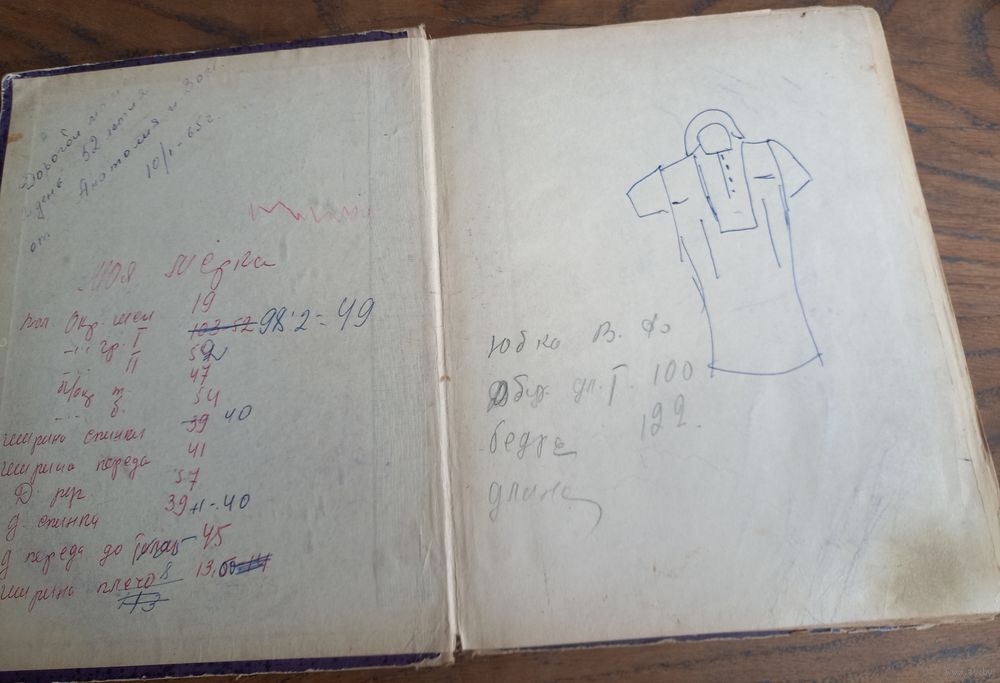 Дорогой
день 52 летия
Анатолия и Зои
от 10/I-65 г.
Моя мерка
пол. Окр. шеи 19
-"- гр. I 103-52 98:2=49
II 52
П/окр т. 47
-"- б. 54
ширина спинки 39 40
ширина переда 41
Д. рук 57
д. спинки 39+1-40
д переда до 45
ширина плеча 13,
13
Юбка В. Ф
Обх. дл. Т. 100
бедра 122.
длина